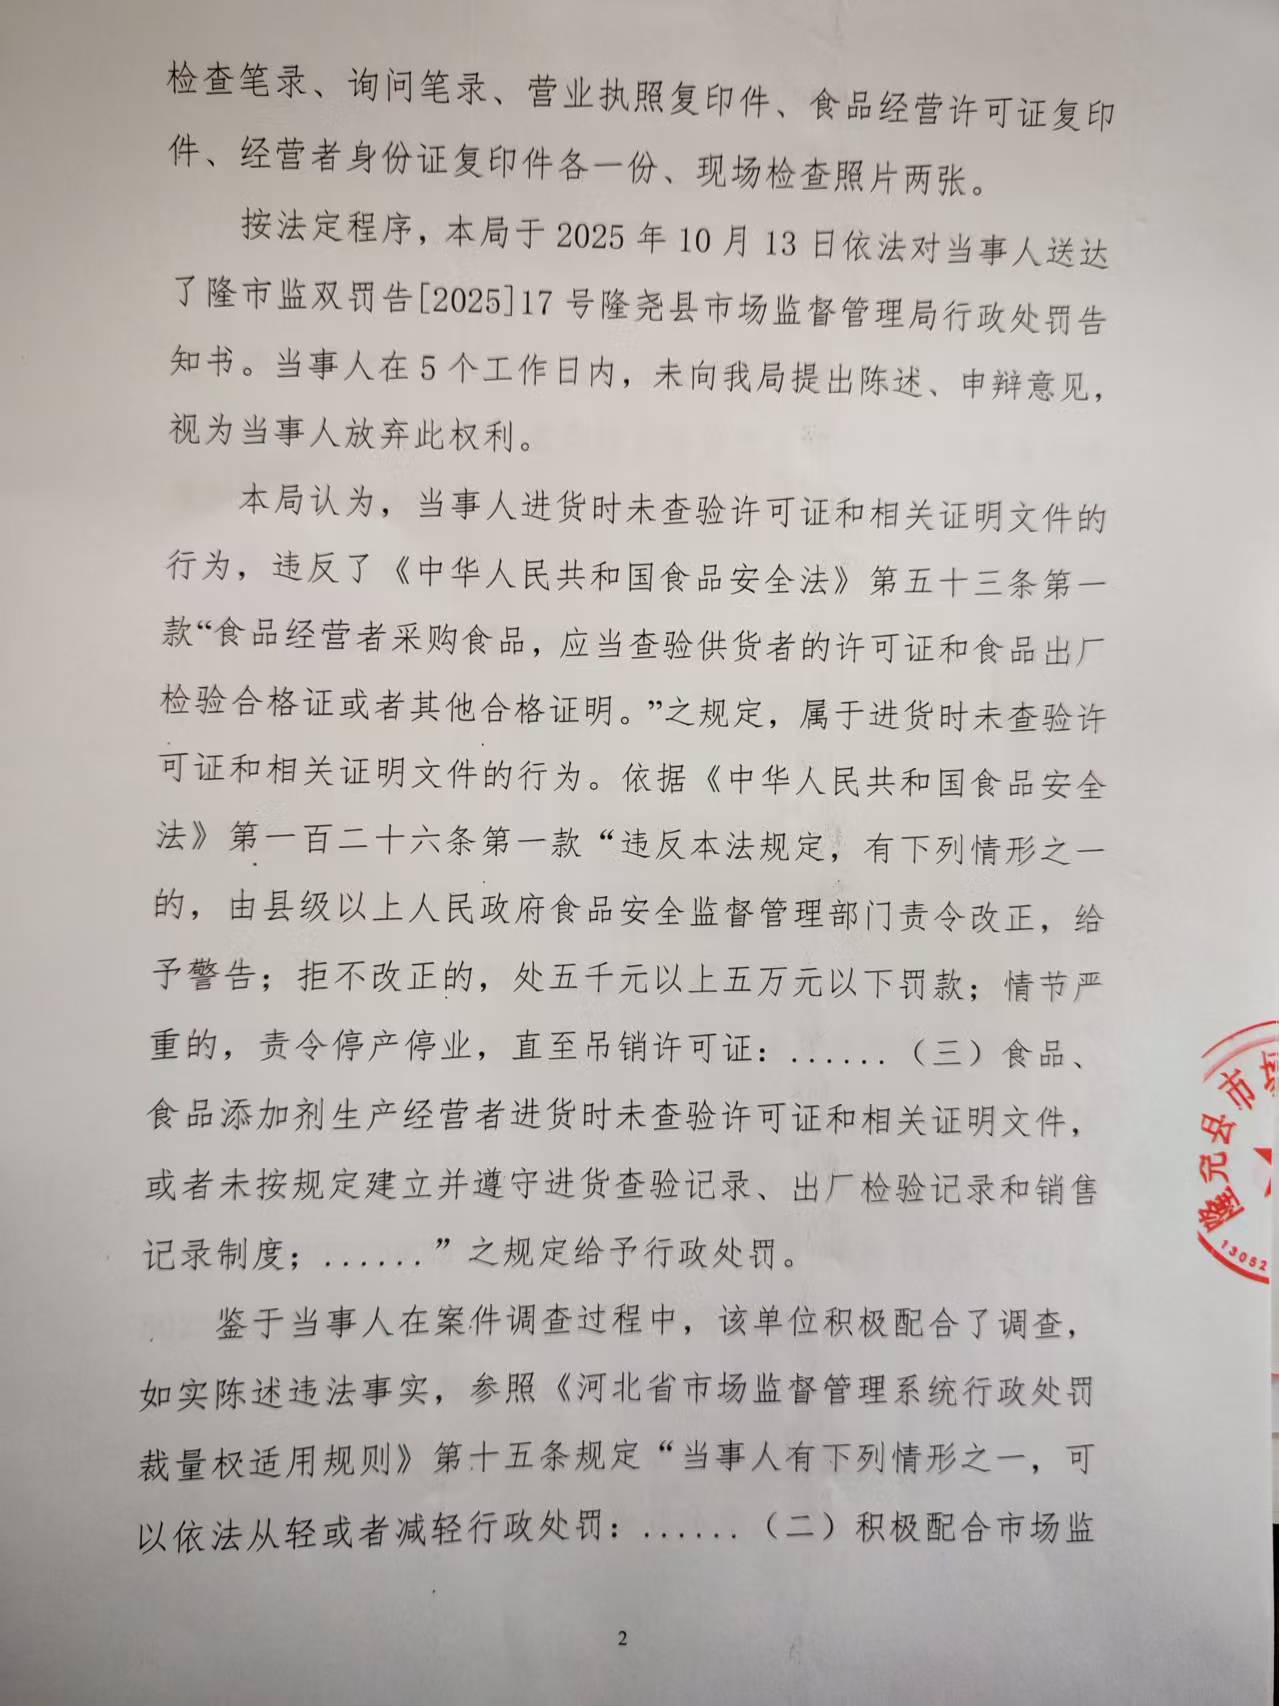 检查笔录、询问笔录、营业执照复印件、食品经营许可证复印
件、经营者身份证复印件各一份、现场检查照片两张。
按法定程序，本局于 2025 年 10 月 13 日依法对当事人送达
了隆市监双罚告[2025]17 号隆尧县市场监督管理局行政处罚告
知书。当事人在 5 个工作日内，未向我局提出陈述、申辩意见，
视为当事人放弃此权利。
本局认为，当事人进货时未查验许可证和相关证明文件的
行为，违反了《中华人民共和国食品安全法》第五十三条第一
款“食品经营者采购食品，应当查验供货者的许可证和食品出厂
检验合格证或者其他合格证明。”之规定，属于进货时未查验许
可证和相关证明文件的行为。依据《中华人民共和国食品安全
法》第一百二十六条第一款“违反本法规定，有下列情形之一
的，由县级以上人民政府食品安全监督管理部门责令改正，给
予警告；拒不改正的，处五千元以上五万元以下罚款；情节严
重的，责令停产停业，直至吊销许可证：......（三）食品、
食品添加剂生产经营者进货时未查验许可证和相关证明文件，
或者未按规定建立并遵守进货查验记录、出厂检验记录和销售
记录制度；......”之规定给予行政处罚。
鉴于当事人在案件调查过程中，该单位积极配合了调查，
如实陈述违法事实，参照《河北省市场监督管理系统行政处罚
裁量权适用规则》第十五条规定“当事人有下列情形之一，可
以依法从轻或者减轻行政处罚：......（二）积极配合市场监
2
隆尧县市场
13052